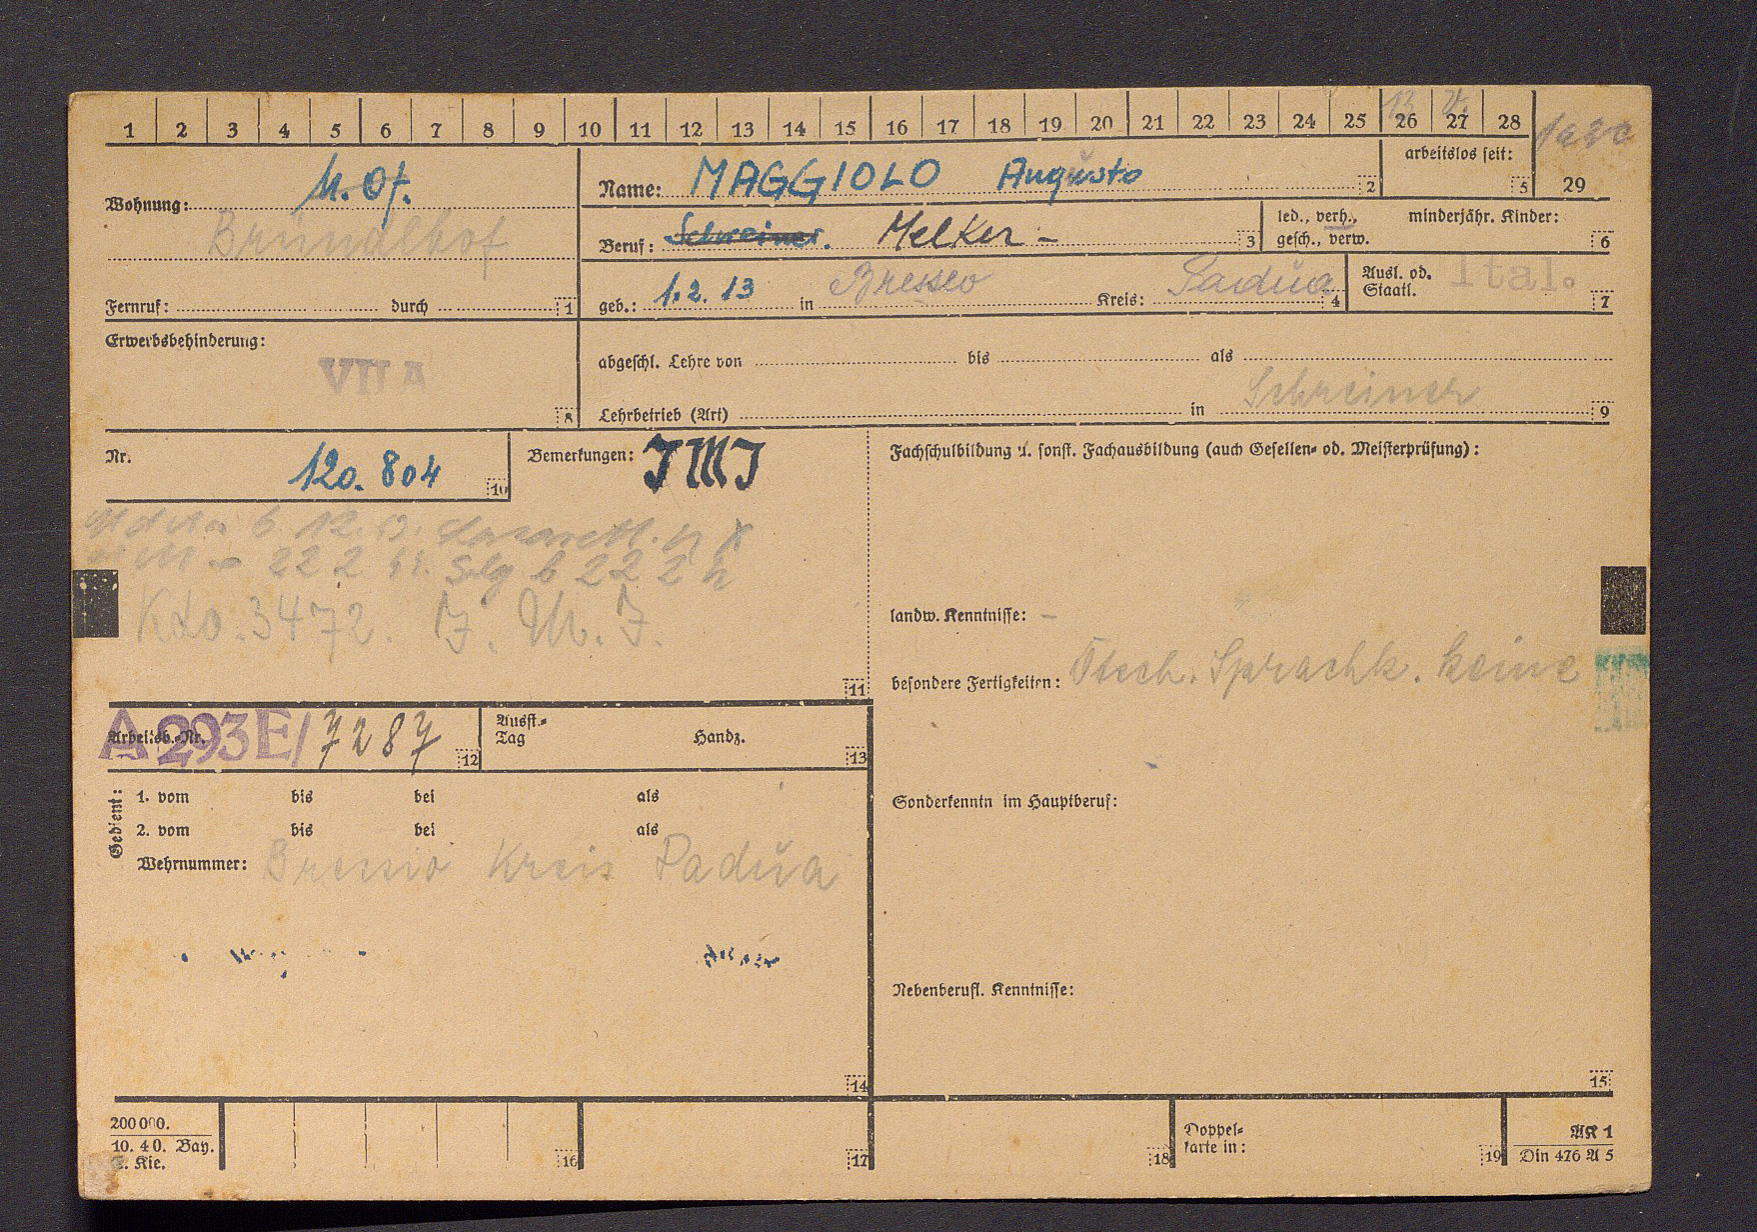 1 2 3 4 5 6 7 8 9 10 11 12 13 14 15 16 17 18 19 20 21 22 23 24 25 26 27 28
arbeitslos seit:
5 29
Wohnung:
Bründlhof
Fernruf: durch 1
Name: MAGGIOLO Augusto 2
Beruf: Schreiner. Melker - 3
led., verh., gesch., verw.
minderjähr. Kinder: 6
geb.: 1.2.13 in Bresseo Kreis: Padua 4
Ausl. od. Staatl. Ital. 7
Erwerbsbehinderung:
VII A
8
abgeschl. Lehre von bis als
Schreiner
Lehrbetrieb (Art) in 9
Nr. 120.804 10
Bemerkungen: IMI
222
Kdo. 3472. I. M. I.
11
Fachschulbildung u. sonst. Fachausbildung (auch Gesellen- od. Meisterprüfung):
landw. Kenntnisse: -
besondere Fertigkeiten: Sprachk. keine
Arbeitsb.-Nr. A 293E/ 7287 12
Ausst.-Tag Handz. 13
Gedient:
1. vom bis bei als
2. vom bis bei als
Wehrnummer: Bressio Kreis Padua
14
Sonderkenntn im Hauptberuf:
Nebenberufl. Kenntnisse:
15
200000.
10. 40. Bay.
C. Kie.
16 17 18
Doppel-
karte in: 19
AK 1
Din 476 A 5